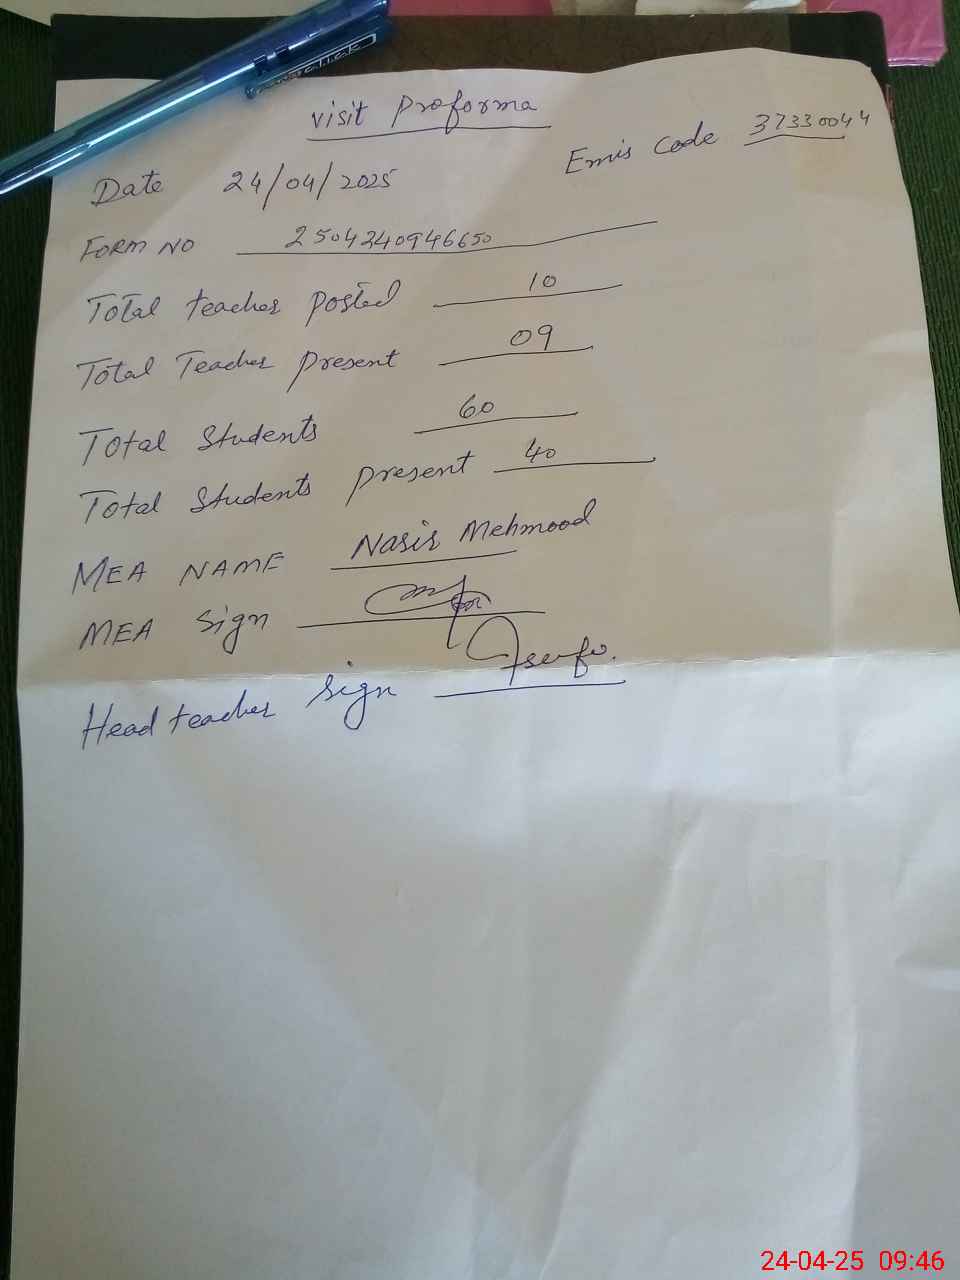 visit Proforma
Emis Code 37330044
Date 24/04/2025
FORM NO 2504240946650
Total teacher posted 10
Total Teacher present 09
Total Students 60
Total Students present 40
MEA NAME Nasir Mehmood
MEA Sign
Head teacher Sign
24-04-25 09:46